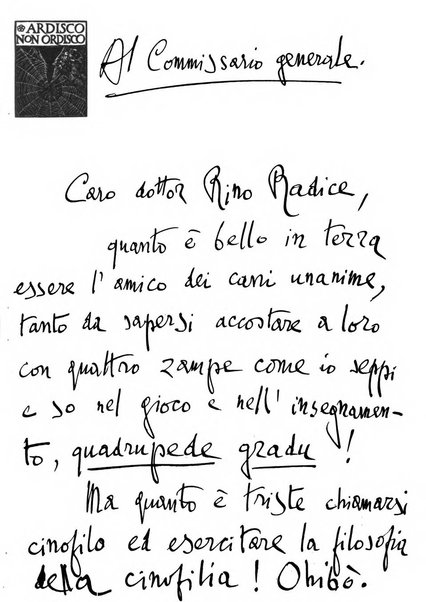 ARDISCO
NON ORDISCO
Al Commissario generale.
Caro dottor Rino Radice,
quanto è bello in terra
essere l'amico dei cani unanime,
tanto da sapersi accostare a loro
con quattro zampe come io seppi
e so nel gioco e nell'insegnamen-
to, quadrupede gradu !
Ma quanto è triste chiamarsi
cinofilo ed esercitare la filosofia
della cinofilia ! Ohibò.